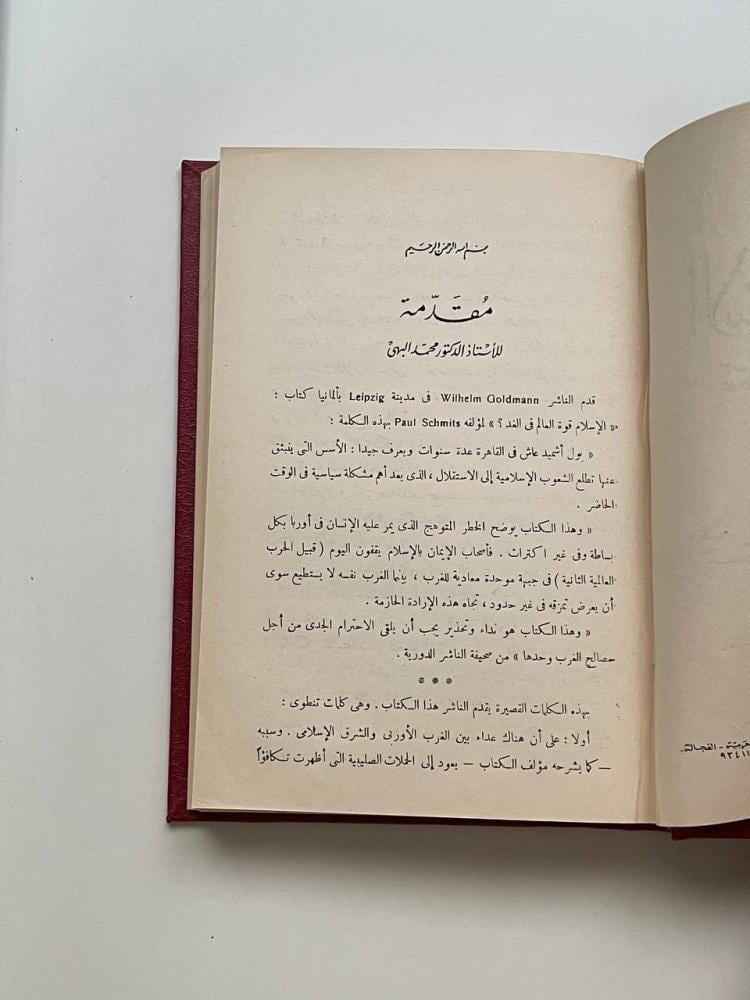 بسم الله الرحمن الرحيم
مُقَدّمة
للأستاذ الدكتور محمد البهيّ
قدم الناشر Wilhelm Goldmann فى مدينة Leipzig بألمانيا كتاب :
« الإسلام قوة العالم فى الغد ؟ » لمؤلفه Paul Schmits بهذه الكلمة :
« بول أشميد عاش فى القاهرة عدة سنوات ويعرف جيدا : الأسس التى ينبثق
عنها تطلع الشعوب الإسلامية إلى الاستقلال ، الذى يعد أهم مشكلة سياسية فى الوقت
الحاضر .
« وهذا الكتاب يوضح الخطر المتوهج الذى يمر عليه الإنسان فى أوربا بكل
بساطة وفى غير اكتراث . فأصحاب الإيمان بالإسلام يقفون اليوم ( قبيل الحرب
العالمية الثانية ) فى جبهة موحدة معادية للغرب ، بينما الغرب نفسه لا يستطيع سوى
أن يعرض تمزقه فى غير حدود ، تجاه هذه الإرادة الحازمة .
« وهذا الكتاب هو نداء وتحذير يجب أن يلقى الاحترام الجدى من أجل
مصالح الغرب وحدها » من صحيفة الناشر الدورية .
* * *
بهذه الكلمات القصيرة يقدم الناشر هذا الكتاب . وهى كلمات تنطوى :
أولا : على أن هناك عداء بين الغرب الأوربى والشرق الإسلامى . وسببه
— كما يشرحه مؤلف الكتاب — يعود إلى الحملات الصليبية التى أظهرت تكافؤاً
- الفجالة